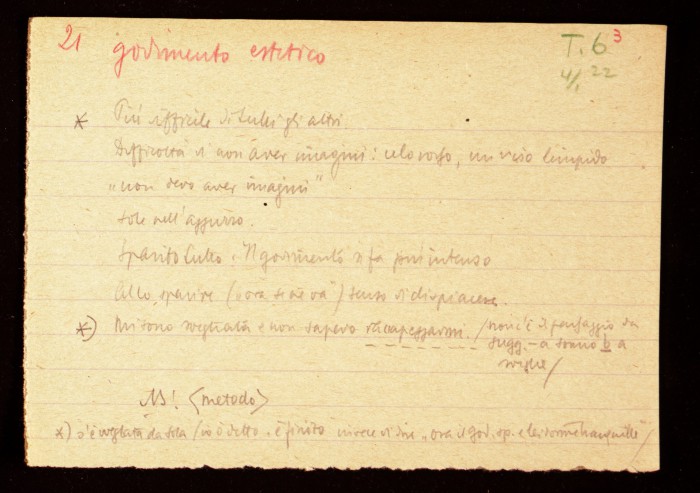 21 godimento estetico
T. 6 3
4/1 22
* Più difficile di tutti gli altri.
Difficoltà di non aver imagini: cielo rosso, un viso limpido
"non devo aver imagini"
sole nell'azzurro.
Sparito tutto. Il godimento si fa più intenso
Allo sparire ("ora se ne va") senso di dispiacere.
*) Mi sono svegliata e non sapevo raccapezzarmi / non c'è il passaggio da
sugg. - a sonno b a
veglia /
NB! <metodo>
*) s'è svegliata da sola / io ò detto "è finito" invece di dire "ora il god. sp. e lei dorme tranquilla" /